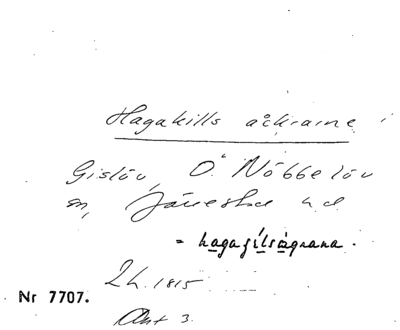 Hagakills åckrarne i
Gislöv, Ö. Nöbbelöv
sn, Järrestad hd
= hagagilsågrana.
Lh. 1815
Nr 7707.
Akt 3.